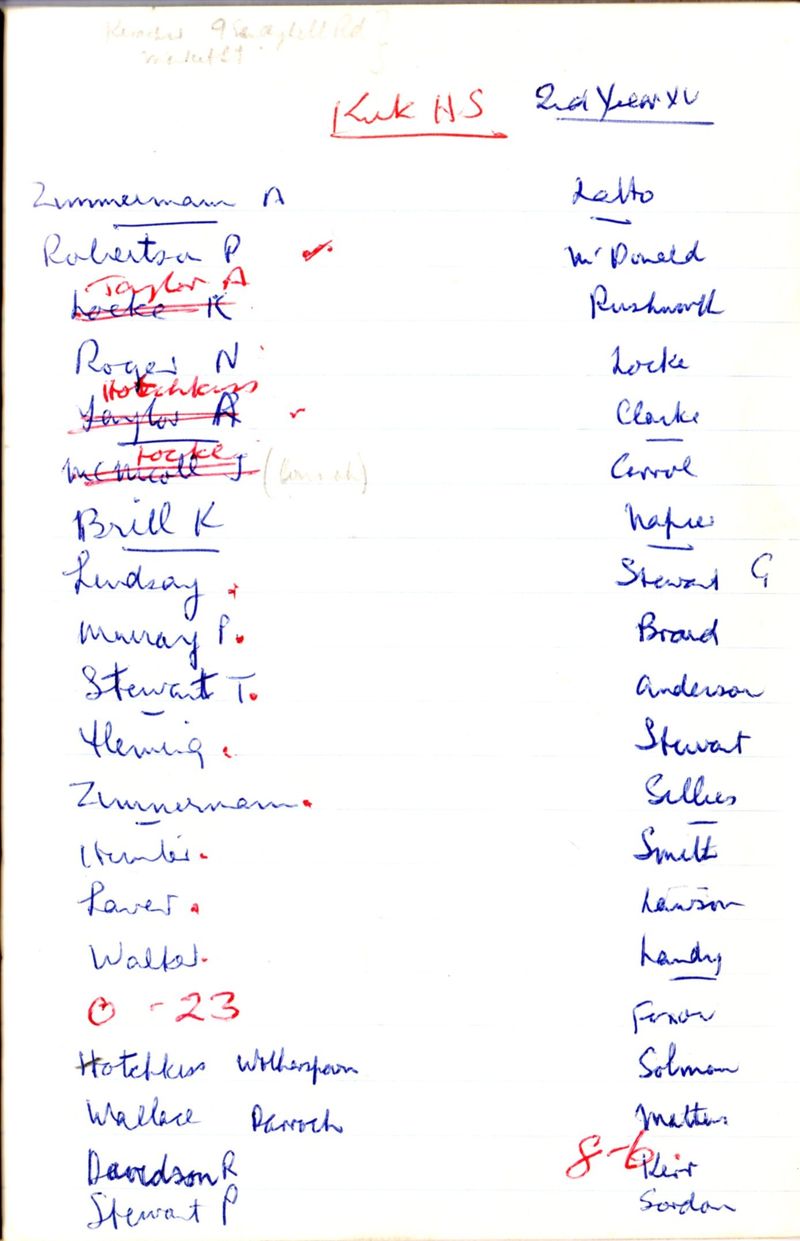 Kirk H.S
2nd Year XV
Zimmermann A
Robertson P
Taylor A
Locke K
Roger N
Hotchkiss
Taylor A
Locke
McNicoll J
Brill K
Lindsay
Murray P.
Stewart T.
Fleming
Zimmermann
Hunter
Laver
Walker
0 - 23
Hotchkiss Wotherspoon
Wallace Darroch
Davidson R
Stewart P
Latto
McDonald
Rushworth
Locke
Clarke
Carrol
Napier
Stewart G
Broad
Anderson
Stewart
Gillies
Smith
Lawson
Landy
Solman
Matthews
8-6
Keir
Gordon